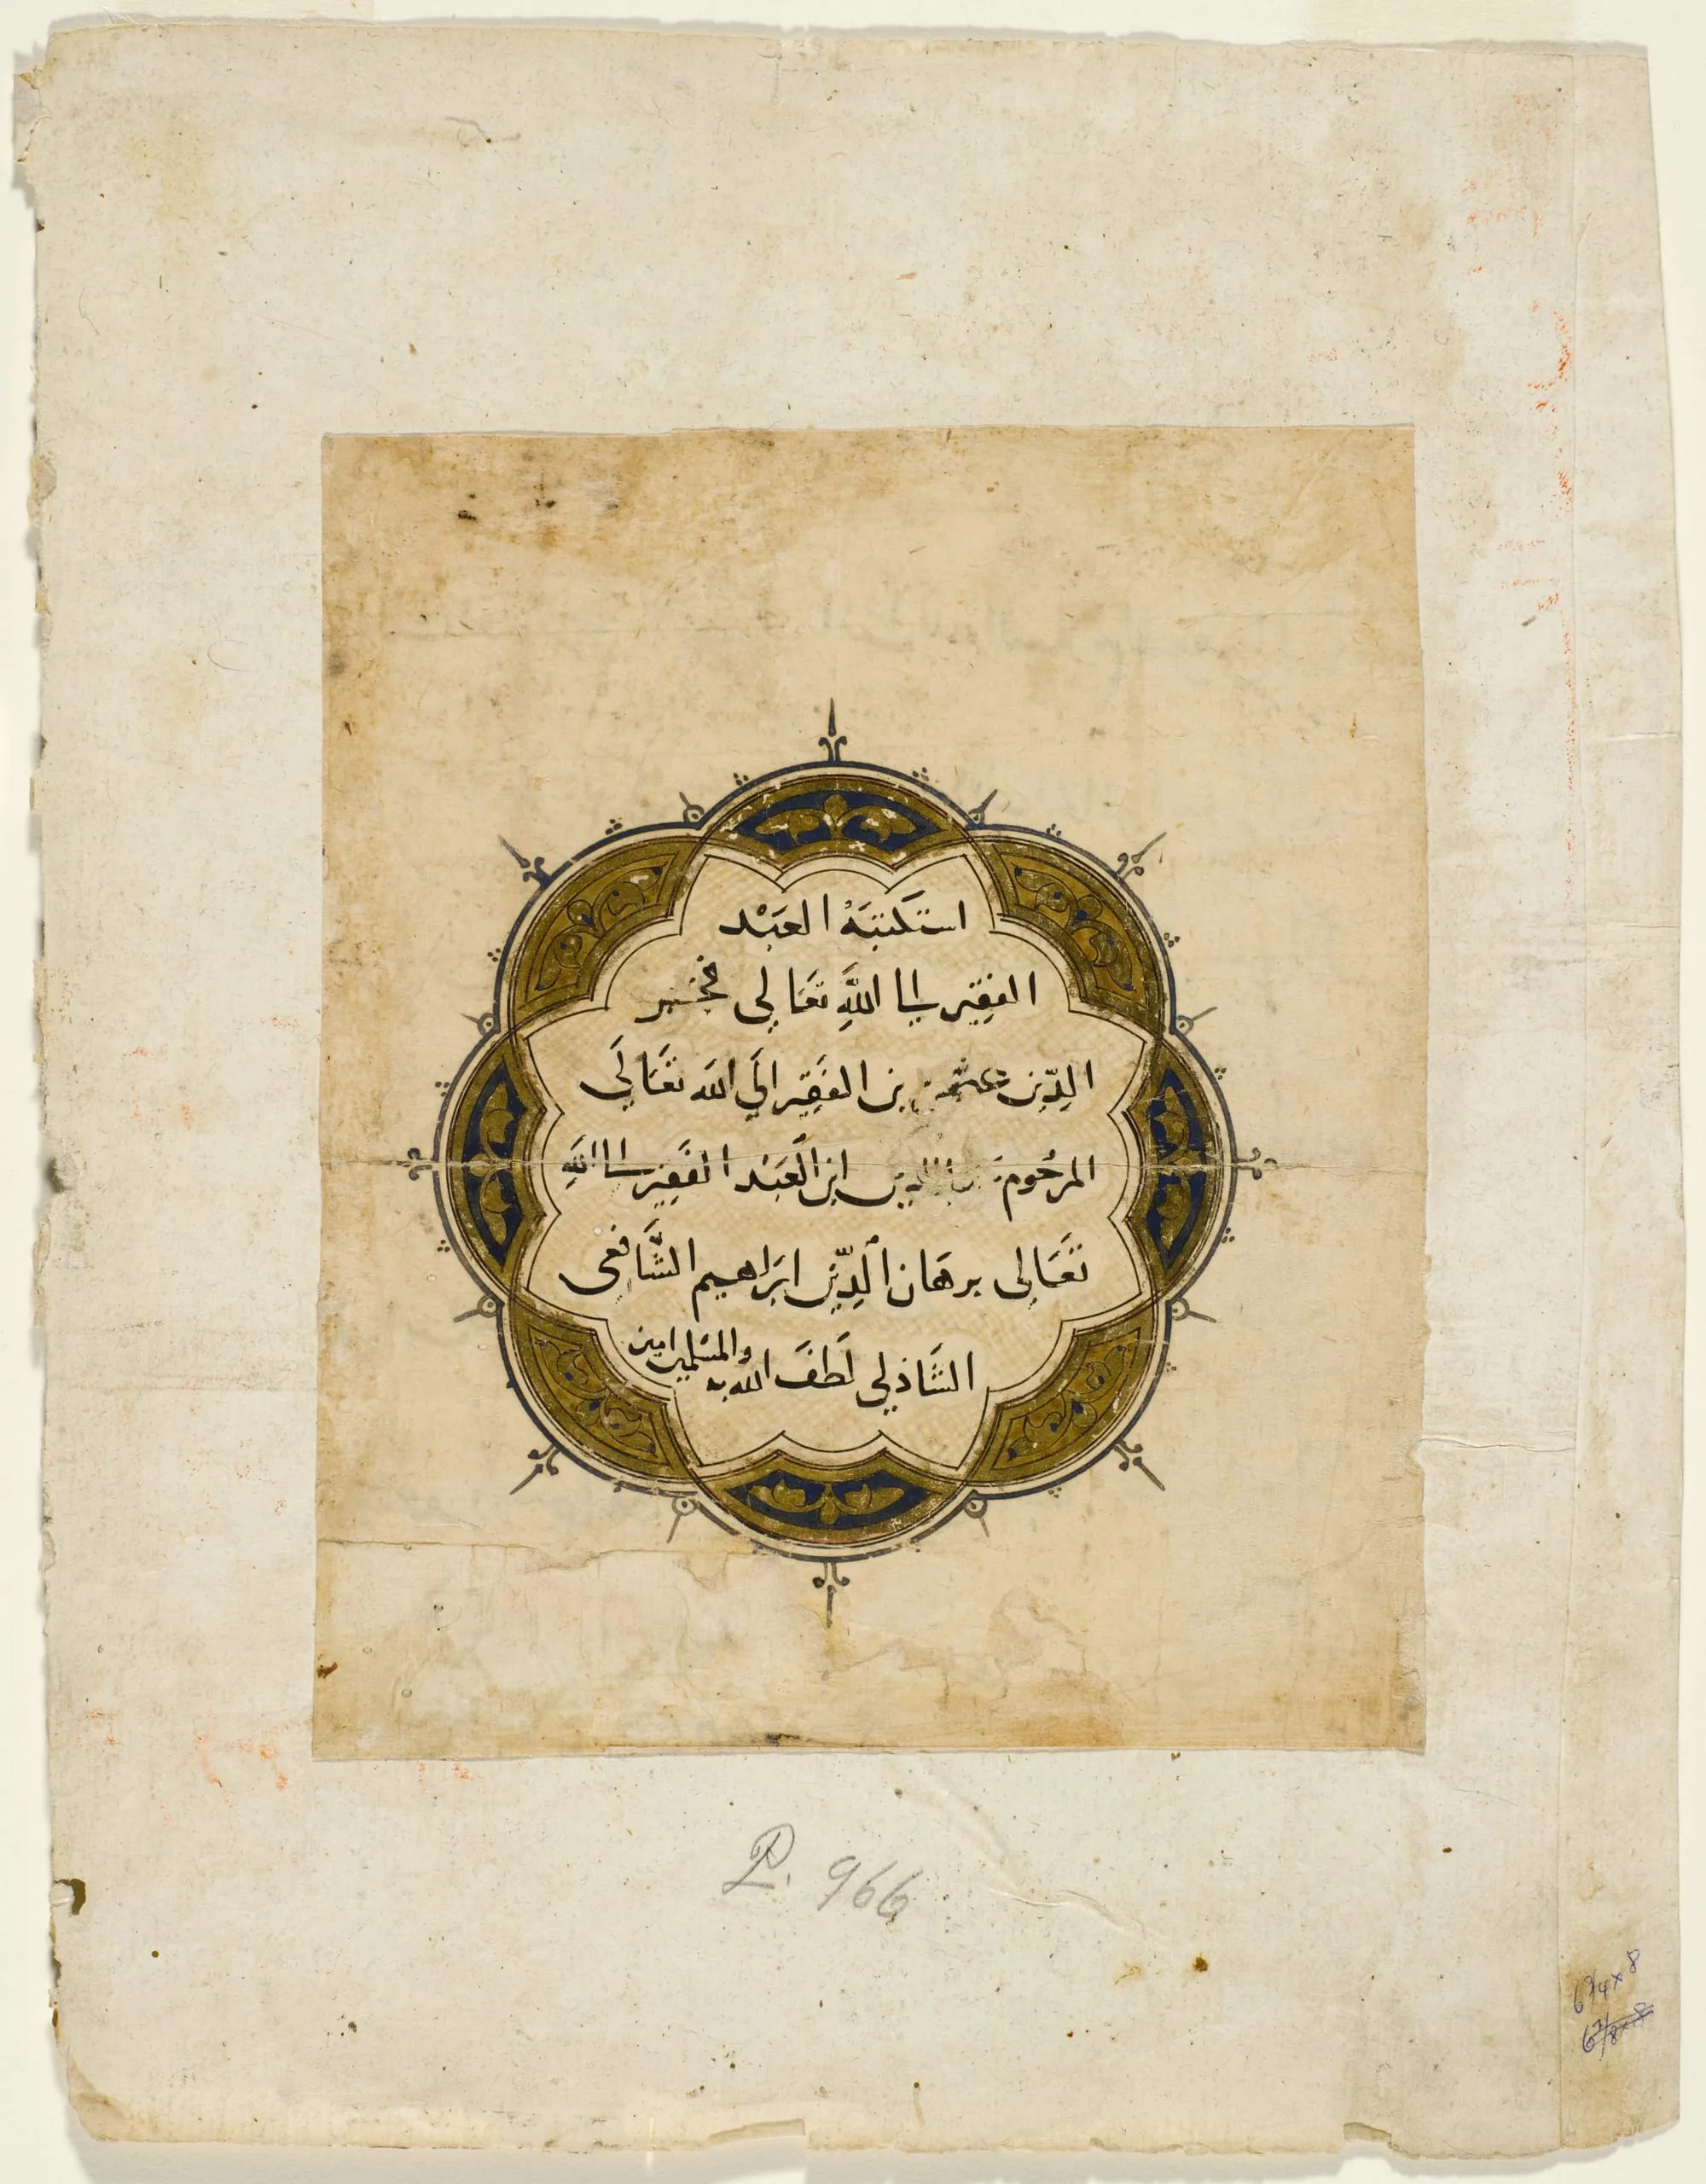 استكتبَهُ العَبْد
الفقِير الى اللَّهِ تعَالى فخر
الدِّين عثمن بن الفَقِير الَي الله تعَالَي
المرحُوم الدين ابن العَبْد الفَقِير الى اللَّهِ
تَعَالى برهَان الدِّين ابرَاهيم الشَّافعى
الشَّاذلي لَطفَ الله به والمسْلمين امين
P. 966
6 3/4 x 8
6 7/8 x 8